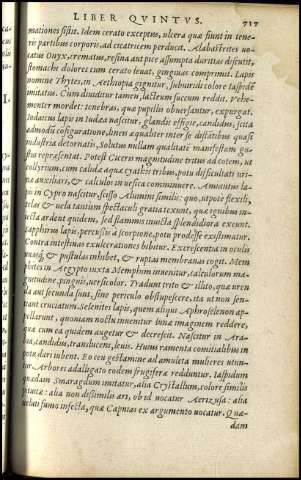 LIBER QVINTVS. 717
mationes sistit. Idem cerato exceptus, ulcera quæ fiunt in tene-
re partibus corporis, ad cicatricem perducit. Alabastretes uo-
catus Onyx, crematus, resina aut pice assumpta duritias discutit,
stomachi dolores cum cerato leuat, gingiuas comprimit. Lapis
nomine Thyites, in Aethiopia gignitur, subuiridis colore Iaspidem
imitatus. Cum diluitur tamen, lacteum succum reddit. Vehe-
menter mordet: tenebras, quæ pupillis obuersantur, expurgat.
Iudaicus lapis in Iudæa nascitur, glandis effigie, candidus, scita
admodum configuratione, lineis æqualiter inter se distantibus quasi
industria detornatis. Solutus nullam qualitatem manifestam gu-
stu repræsentat. Potest Ciceris magnitudine tritus ad cotem, ut
collyrium, cum calidæ aquæ cyathis tribus, potu difficultati uri-
næ auxiliari, & calculos in uesica comminuere. Amiantus la-
pis in Cypro nascitur, scisso Alumini similis: quo, utpote flexili,
telas & uela tantum spectaculi gratia texunt, quæ ignibus in-
iecta ardent quidem, sed flammis inuicta splendidiora exeunt.
Sapphirus lapis, percussis à scorpione, potu prodesse existimatur.
Contra intestinas exulcerationes bibitur. Excrescentia in oculis
& pustulas inhibet, & ruptas membranas cogit. Mem
phites in Aegypto iuxta Memphim inuenitur, calculorum ma-
gnitudine, pinguis, uersicolor. Tradunt trito & illito, quæ uren
da aut secanda sunt, sine periculo obstupescere, ita ut non sen-
tiant cruciatum. Selenites lapis, quem aliqui Aphroselenon ap-
pellarunt, quoniam noctu inuenitur lunæ imaginem reddere,
quæ cum ea quidem augetur & decrescit. Nascitur in Ara-
bia, candidus, tralucens, leuis. Huius ramenta comitialibus in
potu dari iubent. Eo ceu gestamine ad amuleta mulieres utun-
tur. Arbores adalligato eodem frugiferæ redduntur. Iaspidum
quædam Smaragdum imitatur, alia Crystallum, colore similis
pituitæ: alia non dissimilis aëri, ob id uocatur Aerizusa: alia
ueluti fumo infecta, quæ Capnias ex argumento uocatur. Quæ-
dam